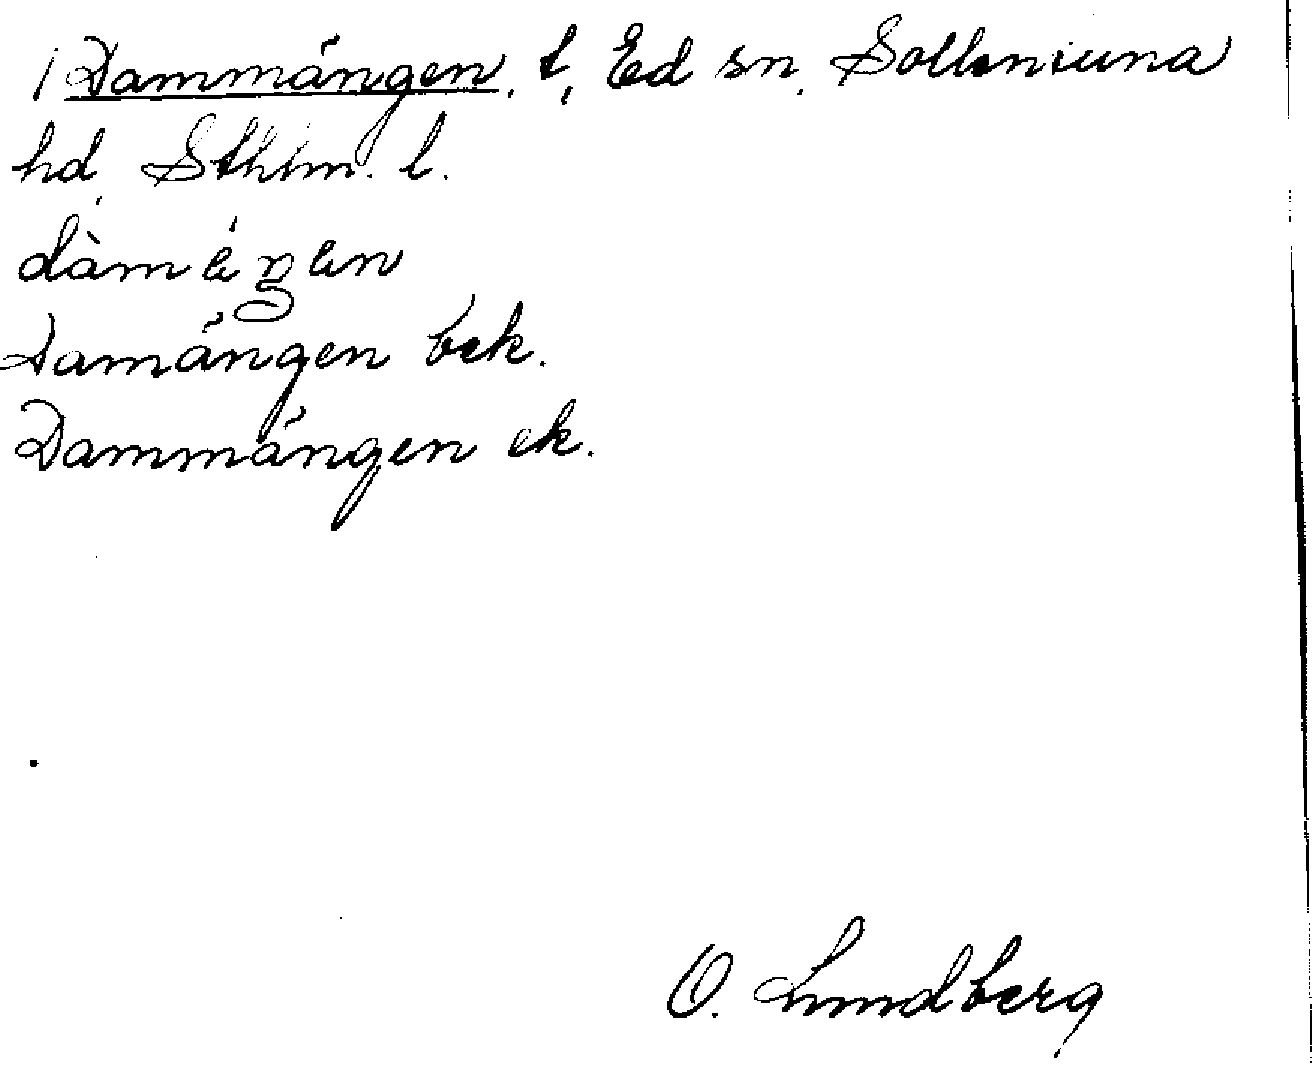 Dammängen, t, Ed sn, Sollentuna
hd, Sthlm. l.
Damängen bek.
Dammängen ek.
O. Lundberg